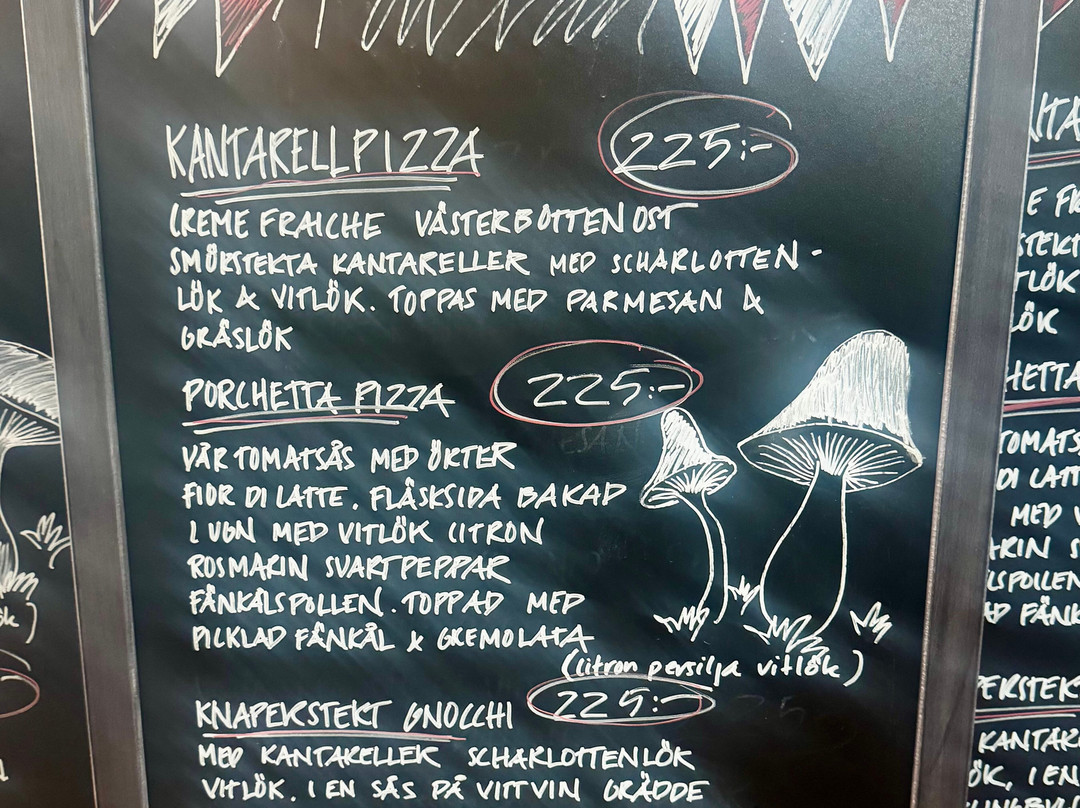 KANTARELLPIZZA 225:-
CREME FRAICHE VÄSTERBOTTENOST
SMÖRSTEKTA KANTARELLER MED SCHARLOTTEN-
LÖK & VITLÖK. TOPPAS MED PARMESAN &
GRÄSLÖK
PORCHETTA PIZZA 225:-
VÅR TOMATSÅS MED ÖRTER
FIOR DI LATTE. FLÄSKSIDA BAKAD
I UGN MED VITLÖK CITRON
ROSMARIN SVARTPEPPAR
FÄNKÅLSPOLLEN. TOPPAD MED
PICKLAD FÄNKÅL & GREMOLATA
(citron persilja vitlök)
KNAPERSTEKT GNOCCHI 225:-
MED KANTARELLER SCHARLOTTENLÖK
VITLÖK. I EN SÅS PÅ VITT VIN GRÄDDE